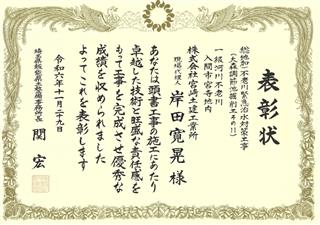 表彰状
総地加）不老川緊急治水対策工事
（大森調節池掘削工その11）
一級河川不老川
入間市宮寺地内
株式会社宮崎土建工業所
現場代理人 岸田寛晃様
あなたは頭書工事の施工にあたり
卓越した技術と旺盛な責任感を
もって工事を完成させ優秀な
成績を収められました
よってこれを表彰します
令和六年十一月二十九日
埼玉県総合技術センター所長 関宏